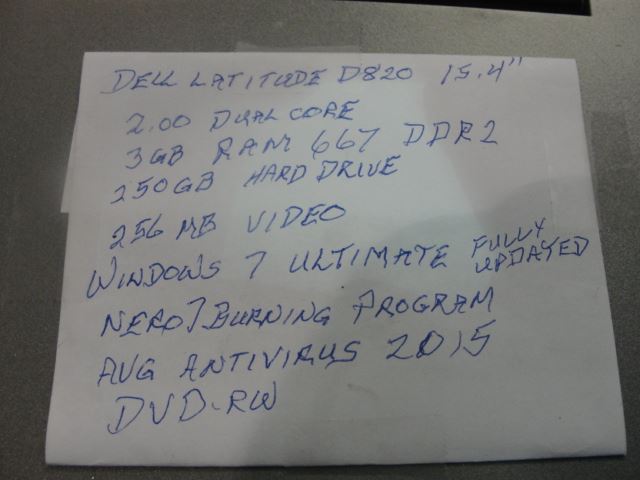 DELL LATITUDE D820 15.4"
2.00 DUAL CORE
3GB RAM 667 DDR2
250GB HARD DRIVE
256 MB VIDEO
WINDOWS 7 ULTIMATE FULLY UPDATED
NERO 7 BURNING PROGRAM
AVG ANTIVIRUS 2015
DVD-RW